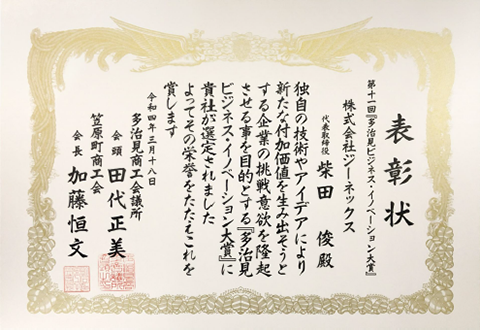 表彰状
第十一回『多治見ビジネス・イノベーション大賞』
株式会社ジーネックス
代表取締役 柴田 俊殿
独自の技術やアイデアにより
新たな付加価値を生み出そうと
する企業の挑戦意欲を隆起
させる事を目的とする『多治見
ビジネス・イノベーション大賞』に
貴社が選定されました
よってその栄誉をたたえこれを
賞します
令和四年三月十八日
多治見商工会議所
会頭 田代正美
笠原町商工会
会長 加藤恒文